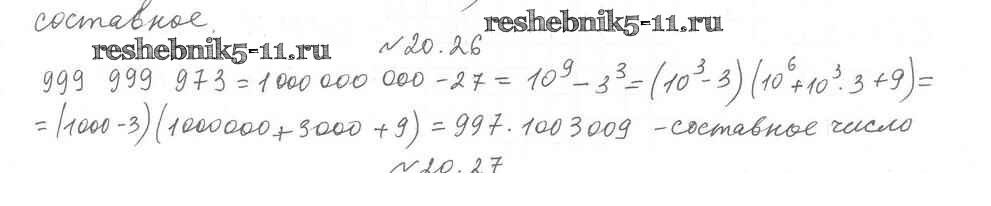 составное.
reshebnik5-11.ru
reshebnik5-11.ru
№20.26
999 999 973 = 1000 000 000 - 27 = 10⁹ - 3³ = (10³ - 3) (10⁶ + 10³ · 3 + 9) =
= (1000 - 3) (1000000 + 3000 + 9) = 997 · 1003009 - составное число
№20.27